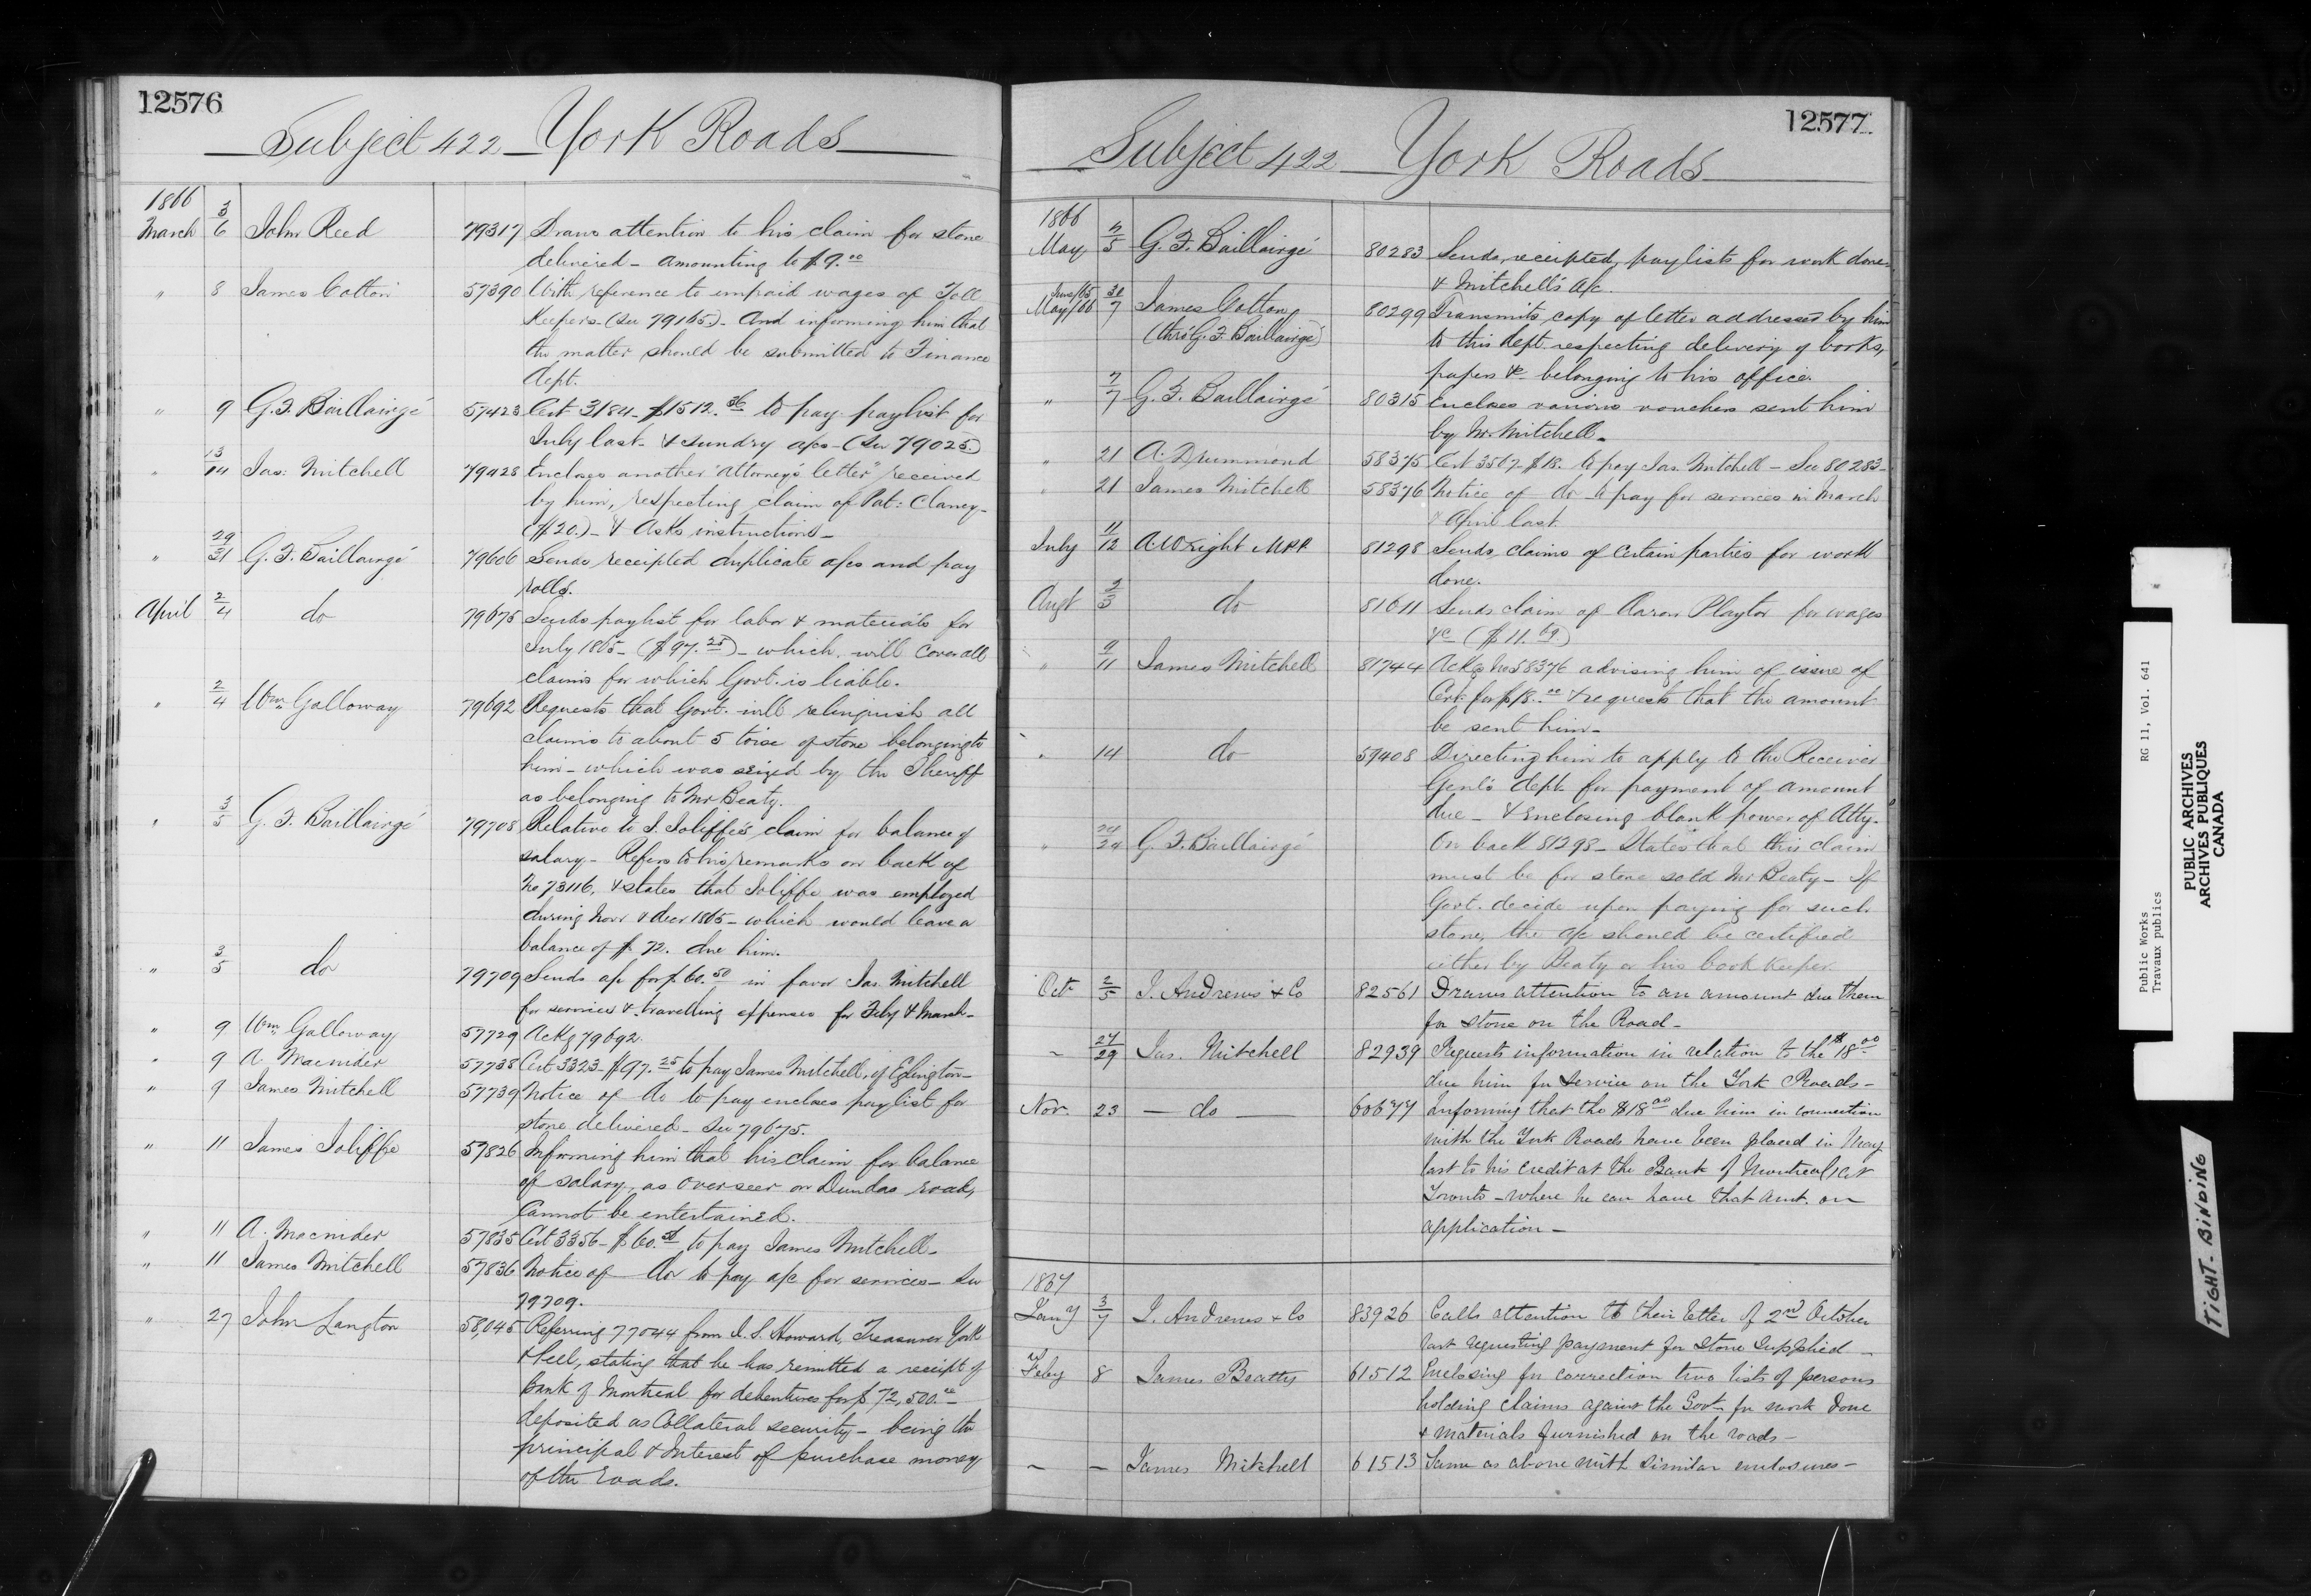 12576
Subject 422 - York Roads
1866
March 3/6 John Reed 79317 Draws attention to his claim for stone
delivered - amounting to $9.00
" 8 James Cotton 57390 With reference to unpaid wages of Toll
Keepers - (See 79165) - And informing him that
the matter should be submitted to Finance
dept.
" 9 G. F. Baillairgé 57423 Cert 3184 - $1512.36 to pay paylist for
July last - & sundry a/cs - (See 79025)
" 13/14 Jas: Mitchell 79428 Encloses another "Attorney's letter" received
by him, respecting claim of Pat: Clancy -
($20.) - & Asks instructions -
" 29/31 G. F. Baillairgé 79606 Sends receipted duplicate a/cs and pay
rolls.
April 2/4 do 79675 Sends paylist for labor & materials for
July 1865 - ($97.25) - which will cover all
claims for which Govt. is liable.
" 2/4 Wm. Galloway 79692 Requests that Govt. will relinquish all
claims to about 5 toise of stone belonging to
him - which was seized by the Sheriff
as belonging to Mr Beaty.
" 3/5 G. F. Baillairgé 79708 Relative to J. Joliffe's claim for balance of
salary - Refers to his remarks on back of
No 73116, & states that Joliffe was employed
during Novr & decr 1865 - which would leave a
balance of $72. due him.
" 3/5 do 79709 Sends a/c for $60.50 in favor Jas. Mitchell
for services & travelling expenses for Feby & March -
" 9 Wm. Galloway 57729 Ackg 79692.
" 9 A. Macnider 57738 Cert 3323 $97.25 to pay James Mitchell, of Eglington -
" 9 James Mitchell 57739 Notice of do to pay encloses paylist for
stone delivered - See 79675.
" 11 James Joliffe 57826 Informing him that his claim for balance
of salary, as Overseer on Dundas road,
Cannot be entertained.
" 11 A. Macnider 57835 Cert 3356 - $60.50 to pay James Mitchell -
" 11 James Mitchell 57836 Notice of do to pay a/c for services - See
79709.
" 27 John Langton 58,045 Referring 77044 from J. S. Howard, Treasurer York
& Peel, stating that he has remitted a receipt of
Bank of Montreal for debentures for $72,500.00 -
deposited as Collateral security - being the
principal & Interest of purchase money
of the roads.
12577
Subject 422 - York Roads
1866
May 5/5 G. F. Baillairgé 80283 Sends, receipted, paylists for work done
& Mitchell's a/c.
June/65 30
May/66 7 James Cotton 80299 Transmits copy of letter addressed by him
(thro' G. F. Baillairgé) to this dept. respecting delivery of books,
papers &c belonging to his office.
" 7/7 G. F. Baillairgé 80315 Encloses various vouchers sent him
by Mr. Mitchell.
" 21 A. Drummond 58375 Cert 3507 $18. to pay Jas. Mitchell - See 80283 -
" 21 James Mitchell 58376 Notice of do to pay for services in March
& April last.
July 11/12 A. Wright MPP. 81298 Sends claims of certain parties for work
done.
Augt 2/3 do 81611 Sends claim of Aaron Playtor for wages
&c ($11.69)
" 9/11 James Mitchell 81744 Ackg No 58376 advising him of issue of
Cert. for $18.00 & requests that the amount
be sent him -
" 14 do 59408 Directing him to apply to the Receiver
Genl's dept. for payment of amount
due - & Enclosing blank power of Atty.
" 24/24 G. F. Baillairgé On back 81298 - States that this claim
must be for stone sold Mr Beaty - If
Govt. decide upon paying for such
stone, the a/c should be certified
either by Beaty or his book keeper.
Oct 2/5 J. Andrews & Co 82561 Draws attention to an amount due them
for stone on the Road -
" 27/29 Jas. Mitchell 82939 Requests information in relation to the $18.00
due him for service on the York Roads -
Nov. 23 - do - 60677 Informing that the $18.00 due him in connection
with the York Roads have been placed in May
last to his credit at the Bank of Montreal at
Toronto - where he can have that amt. on
application -
1867
Jany 3/7 J. Andrews & Co 83926 Calls attention to their letter of 2nd October
last requesting payment for Stone Supplied -
Feby 8 James Beatty 61512 Enclosing for correction two lists of persons
holding claims against the Govt for work done
& materials furnished on the roads -
- - James Mitchell 61513 Same as above with similar enclosures -
Public Works
Travaux publics
RG 11, Vol. 641
PUBLIC ARCHIVES
ARCHIVES PUBLIQUES
CANADA
TIGHT-BINDING